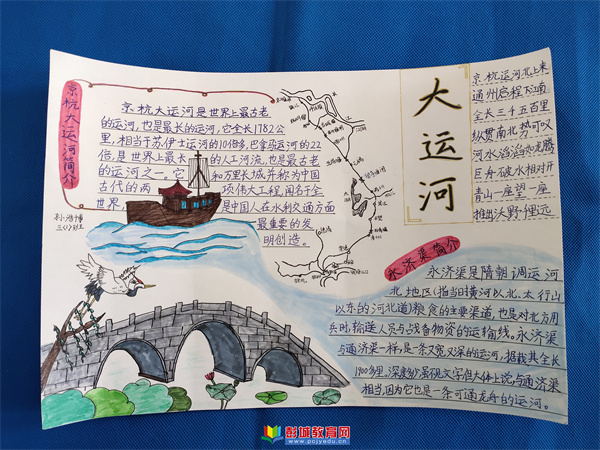 京杭大运河简介
京杭大运河是世界上最古老
的运河,也是最长的运河,它全长1782公
里,相当于苏伊士运河的10倍多,巴拿马运河的22
倍,是世界上最长的人工河流,也是最古老
的运河之一,它和万里长城并称为中国
古代的两项伟大工程,闻名于全
世界,是中国人在水利交通方面
最重要的发
明创造。
三(1)班
大运河
京杭运河北上来
通州启程下江南
全长三千五百里
纵贯南北势可叹
河水滔滔如龙腾
巨舟破水相对开
青山一座望一座
推出沃野一里远
永济渠简介
永济渠是隋朝调运河
北地区(指当日黄河以北,太行山
以东的河北道)粮食的主要渠道,也是对北方用
兵时,输送人员与战备物资的运输线。永济渠
与通济渠一样,是一条又宽又深的运河,据载其全长
1900多里,深度多少,虽不见文字,但大体上说,与通济渠
相当,因为它也是一条可通龙舟的运河。
彭城教育网
www.pcjyedu.cn